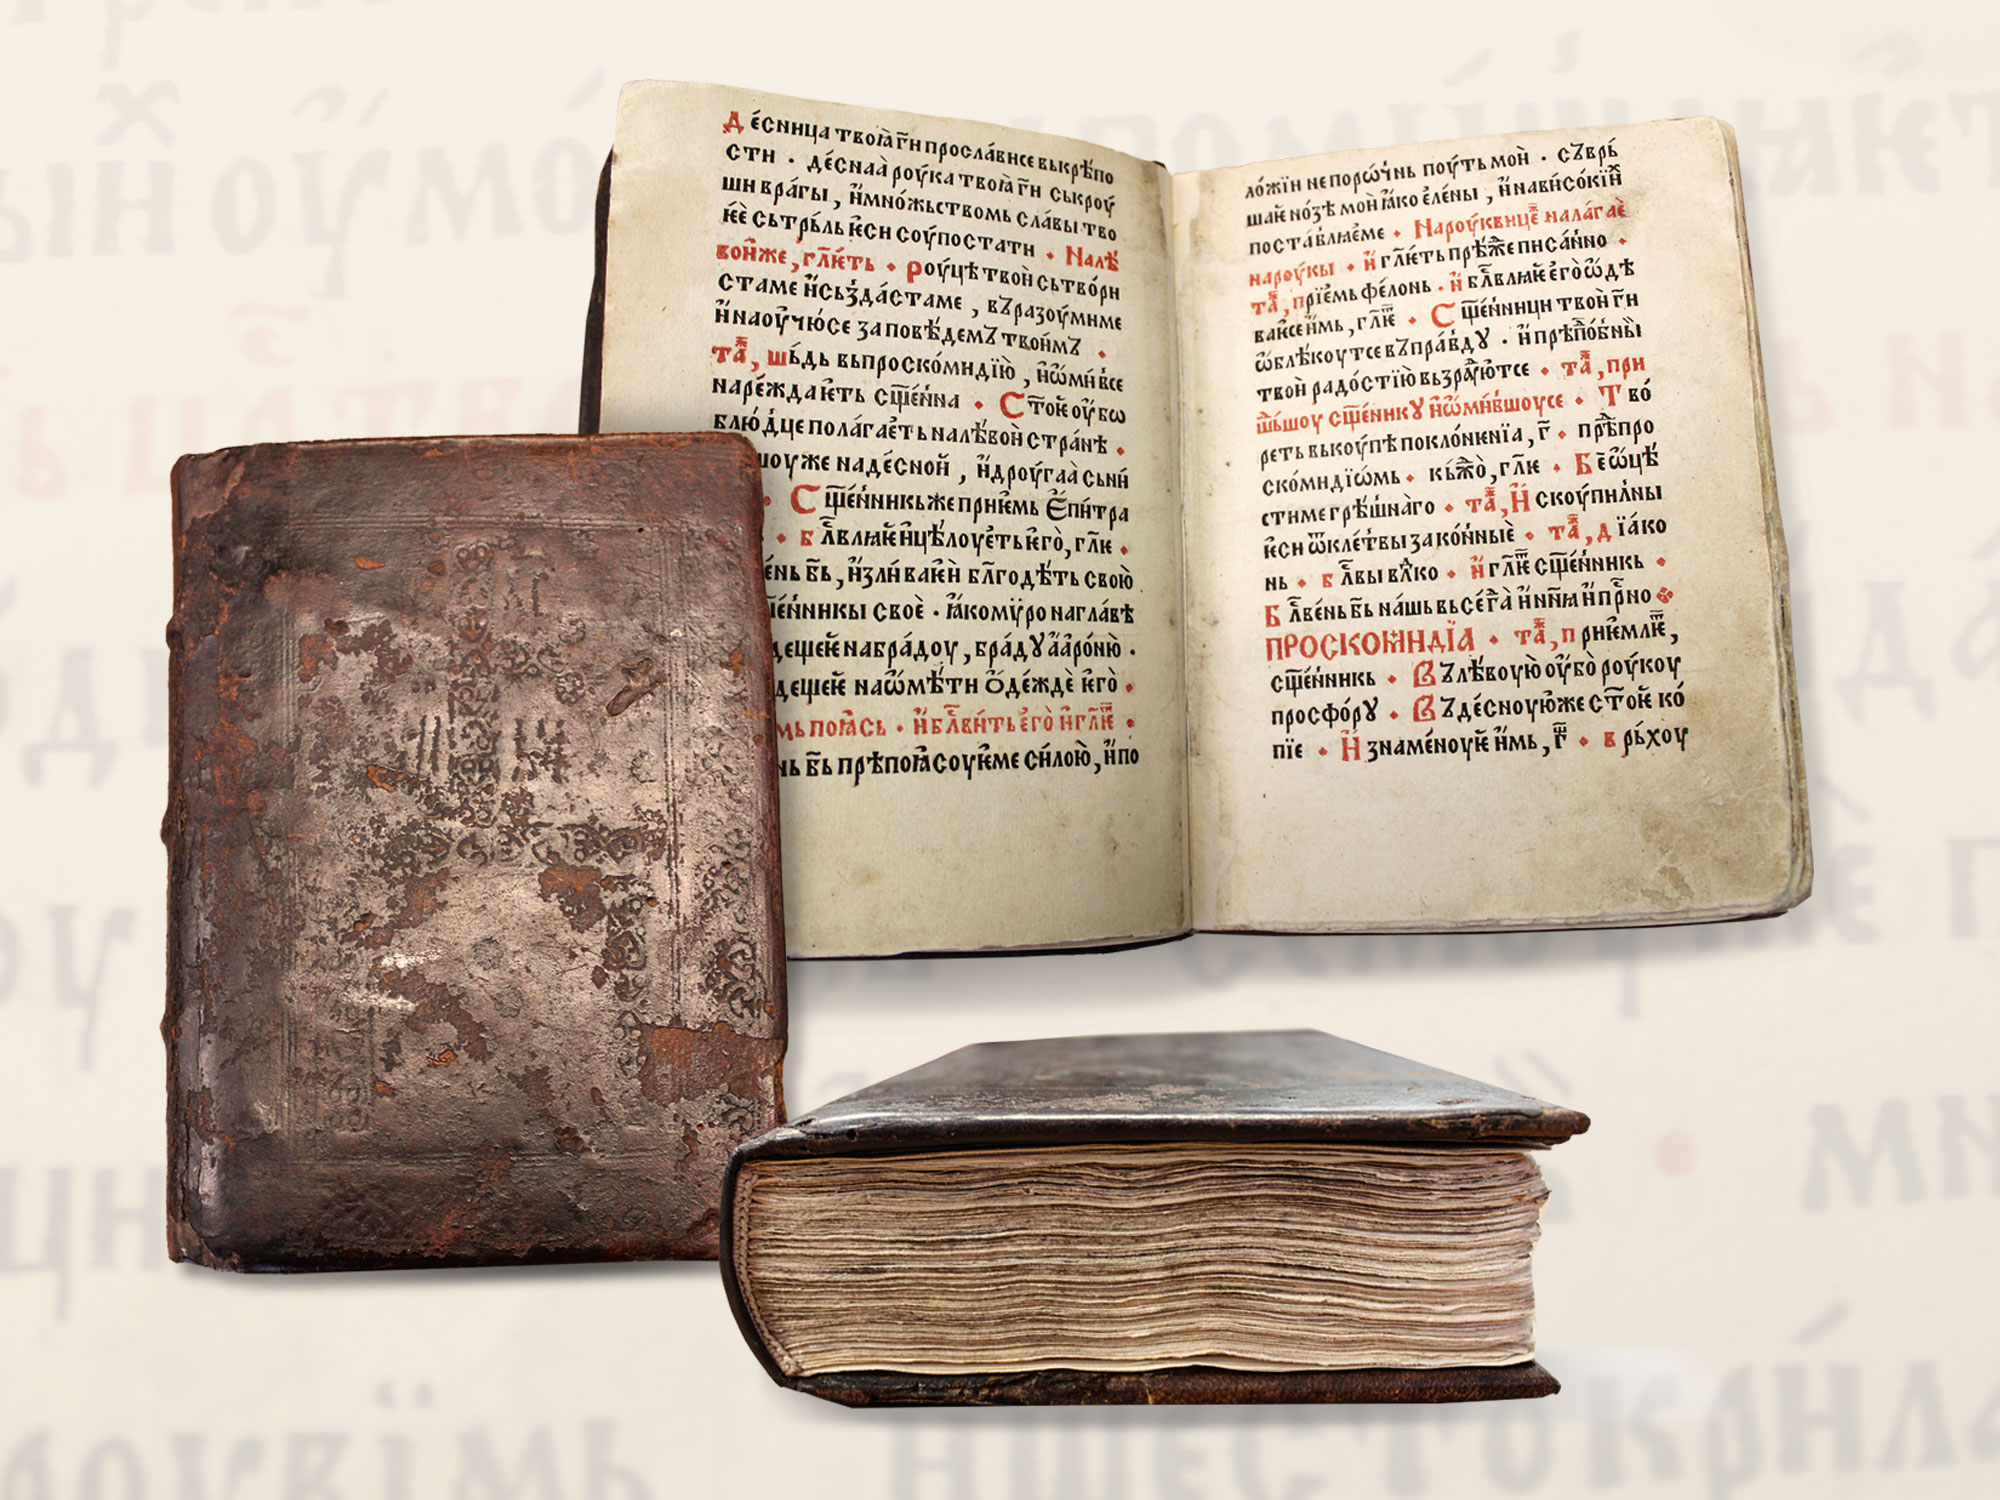 Де́сница твоꙗ̀ гн҃и просла́висе вькрѣ́по
сти · де́снаа̀ роу́ка твоꙗ̀ гн҃и ськроу́
ши вра́гы , и҆мно́жьствомь сла́вы тво
ѥ҆ѐ сьтрь́ль ѥ҆си соу́постати · Налѣ́
вои҆же , гл҃ѥ́ть · Роу́цѣ твои̇̀ сьтво́ри
стаме и҆сьз́да́стаме , въразоу́миме
и҆ наоу҆чю́се заповѣ́демъ твои҆мъ ·
таⷤ , шь́дь вьпроско́мидїю̀ , и҆ѡ҆ми́все
наре́ждаѥ҆ть сщ҃е́нна · Ст҃оѥ оу҆́бѡ
блю́дце пола́гаеть налѣ́вои̇̀ стра́нѣ ·
шоуже наде́снои , и҆дроу́гаа̀ сьни́
· Сщ҃е́нникьже приѥ҆мь Е҆пи́тра
· бл҃влꙗѥ и҆цѣ́лоуе҆ть ѥ҆го̀ , гл҃ѥ ·
е́нь бь҃ , и҆зли́ваѥ҆и̇̀ бл҃годѣ́ть свою̀
щ҃е́нникы своѐ · ꙗ҆комѵ̈ро на гла́вѣ
дещеѥ набра́доу , бра́дꙋ а҆а҆ро́ню ·
дещеѥ наѡ҆мѣ́ти ѻ҆де́ждѐ ѥ҆го̀ ·
мь поꙗ́сь · и҆ бл҃ви́ть е҆го̀ и҆ гл҃ѥⷮ ·
нь бь҃ прѣпоꙗ́соуѥ҆ме си́лою , и҆ по
ло́жїи непоро́чнь поу́ть мои̇̀ · сьврь́
шаѥ но́зѣ мои̇̀ ꙗ҆ко е҆ле́ны , и҆ нави́сокїиⷯ
поста́влꙗе́ме · Нароу́квицеⷤ налага́ѐ
нароукы · и҆ гл҃ѥ́ть прѣⷤе писа́нно ·
таⷤ , прїе́мь фе́лонь · и҆ бл҃влꙗѥ е҆го̀ ѡ҆дѣ́
ваѥсе и҆мь , гл҃ѥⷮ · Сщ҃е́нници твои̇̀ гн҃и
ѡ҆блѣ́коутсе въпра́вдꙋ · и҆ прѣпⷪ҇о́бныи̇̀
твои̇̀ радо́стїю вьзраⷣую́тсе · таⷤ , при
шь́шоу сщ҃е́нникꙋ и҆ѡ҆ми́вшоусе · Тво́
реть выкоу́пѣ покло́нѥнїа , г҃ · прѣⷣпро
ско́мидїѡмь · кь́жⷣо̀ , гл҃ѥ · Бе҃ ѡ҆цѣ́
сти ме грѣ́шнаго · таⷤ , И҆скоу́пилны
ѥ҆си ѿкле́твы зако́нныѐ · таⷤ , дїа́ко
нь · бл҃вы вл҃ко · и҆ гл҃ѥⷮ сщ҃е́нникь ·
Бл҃ве́нь бь҃ на́шь всега̀ и҆ нн҃ꙗ и҆ прⷭ҇но
ПРОСКОМИДЇА · таⷤ , приѥ҆млѥⷮ ,
сщ҃е́нникь · Въ лѣ́воую̀ оу҆бо̀ роу́коу
просфо́рꙋ · Въ де́сноую́же ст҃оѥ ко́
пїе · И҆ зна́меноуѥ и҆мь , г҃ · врь́хоу